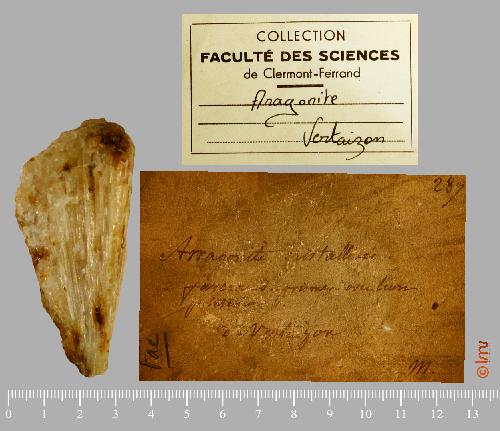 COLLECTION
FACULTÉ DES SCIENCES
de Clermont-Ferrand
Aragonite
Vertaizon
289
Arragonite cristallisée.
de Vertaizon
Fac
M.
© lmv
0 1 2 3 4 5 6 7 8 9 10 11 12 13